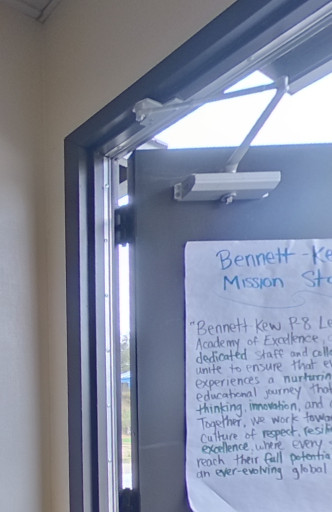 Bennett-Ke
Mission St
"Bennett Kew P-8 Le
Academy of Excellence,
dedicated staff and coll
unite to ensure that e
experiences a nurturin
educational journey that
thinking, innovation, and
Together, we work towar
culture of respect, resil
excellence, where every
reach their full potentia
an ever-evolving global